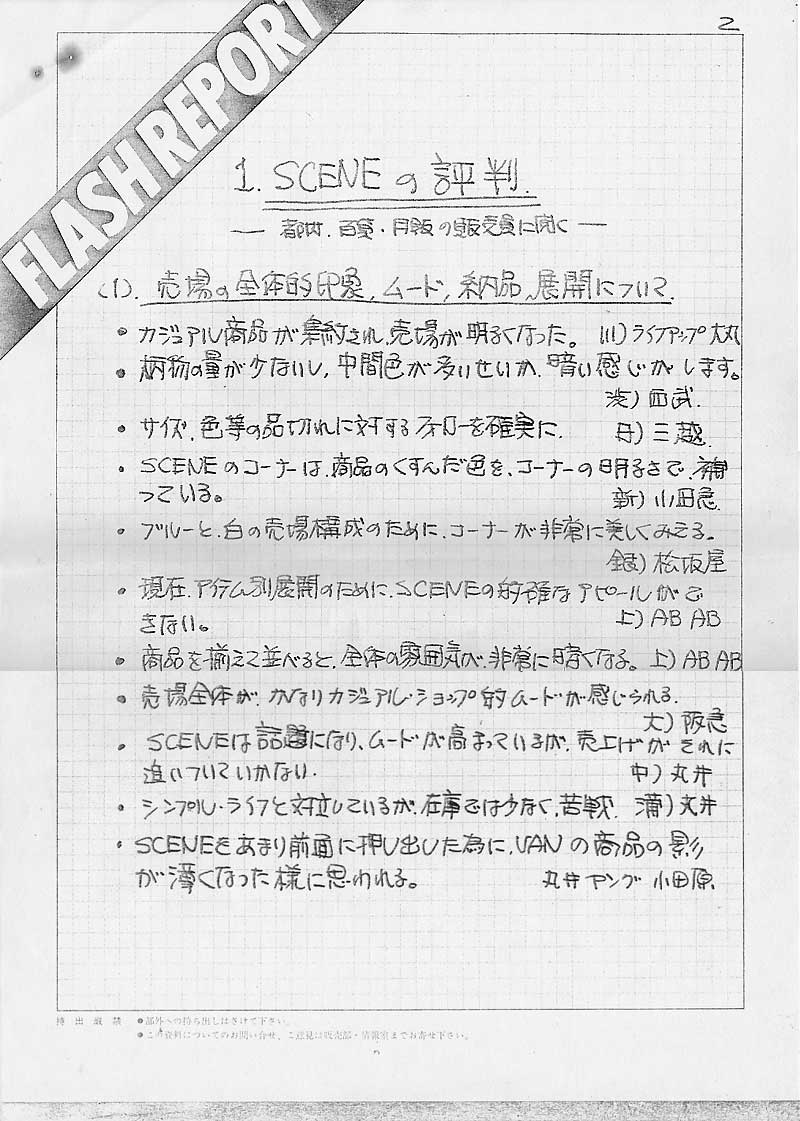 2
FLASH REPORT
1. SCENEの評判.
― 都内. 百貨・月販の販売員に聞く ―
(1). 売場の全体的印象, ムード, 納品, 展開について.
• カジュアル商品が集約され, 売場が明るくなった。 川) ライフアップ大丸
• 柄物の量が少ないし, 中間色が多いせいか, 暗い感じがします。
渋) 西武.
• サイズ. 色等の品切れに対するフォローを確実に. 丹) 三越.
• SCENEのコーナーは, 商品のくすんだ色を, コーナーの明るさで, 補
っている。 新) 小田急.
• ブルーと, 白の売場構成のために, コーナーが非常に美しくみえる。
銀) 松坂屋
• 現在, アイテム別展開のために, SCENEの的確なアピールがで
きない。 上) AB AB
• 商品を揃えて並べると, 全体の雰囲気が, 非常に暗くなる。 上) AB AB
• 売場全体が, かなりカジュアル・ショップ的ムードが感じられる.
大) 阪急
• SCENEは話題になり, ムードが高まっているが, 売上げがそれに
追いついていかない. 中) 丸井
• シンプル・ライフと対立しているが, 在庫では少なく, 苦戦. 蒲) 丸井
• SCENEをあまり前面に押し出した為に, VANの商品の影
が薄くなった様に思われる。 丸井ヤング 小田原.
持出厳禁 ●部外への持ち出しはさけて下さい。
●この資料についてのお問い合せ、ご意見は販売部・情報室までお寄せ下さい。